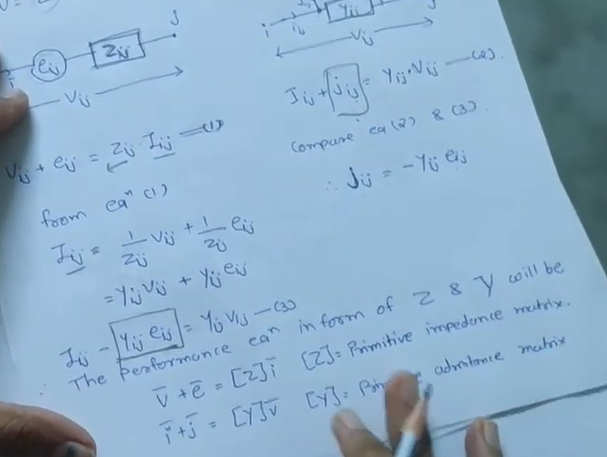 eij
Zij
j
i
Vij
Vij + eij = Zij Iij —(1)
from eqn (1)
Iij = 1/Zij Vij + 1/Zij eij
= Yij Vij + Yij eij
Iij - Yij eij = Yij Vij —(3)
Yij
i
Vij
Iij + jij = Yij Vij —(2).
Compare eq (2) & (3).
∴ Jij = -Yij eij
∴ The performance eqn in form of Z & Y will be
V̄ + ē = [Z]ī [Z] = Primitive impedance matrix.
ī + j̄ = [Y]v̄ [Y] = admitance matrix